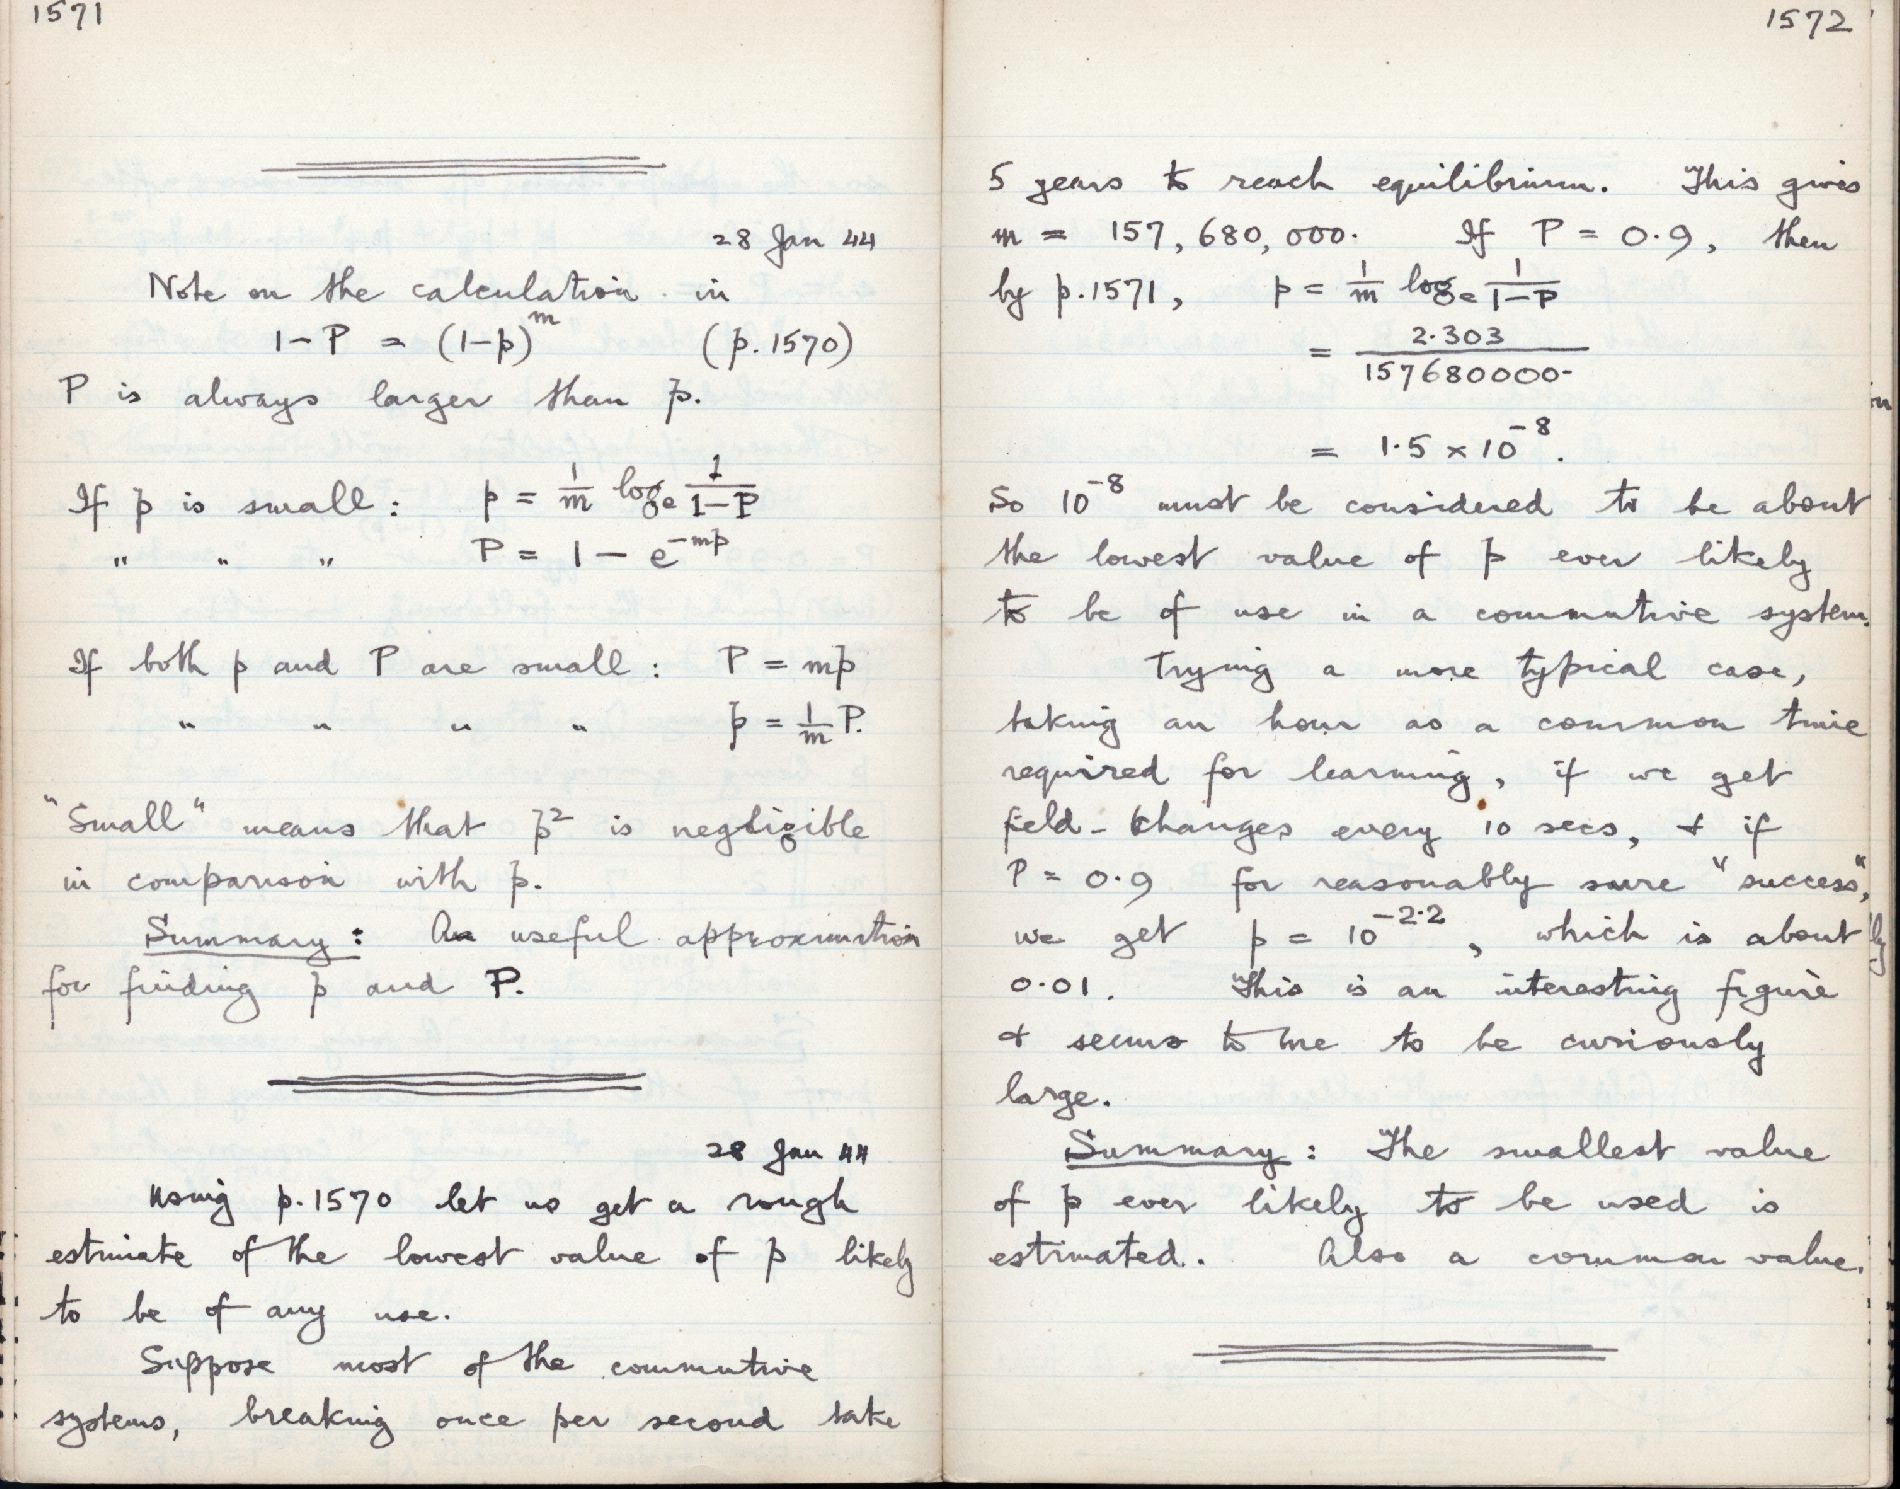 1571
28 Jan 44
Note on the calculation in
1-P = (1-p)^m (p.1570)
P is always larger than p.
If p is small: p = 1/m log_e 1/(1-P)
" " " P = 1 - e^-mp
If both p and P are small: P = mp
" " " " p = 1/m P.
"Small" means that p² is negligible
in comparison with p.
Summary: A useful approximation
for finding p and P.
28 Jan 44
Using p.1570 let us get a rough
estimate of the lowest value of p likely
to be of any use.
Suppose most of the commutive
systems, breaking once per second take
1572
5 years to reach equilibrium. This gives
m = 157,680,000. If P = 0.9, then
by p.1571, p = 1/m log_e 1/(1-P)
= 2.303/157680000
= 1.5 × 10^-8.
So 10^-8 must be considered to be about
the lowest value of p ever likely
to be of use in a commutive system.
Trying a more typical case,
taking an hour as a common time
required for learning, if we get
field-changes every 10 secs, & if
P = 0.9 for reasonably sure "success",
we get p = 10^-2.2, which is about
0.01. This is an interesting figure
& seems to me to be curiously
large.
Summary: The smallest value
of p ever likely to be used is
estimated. Also a common value.